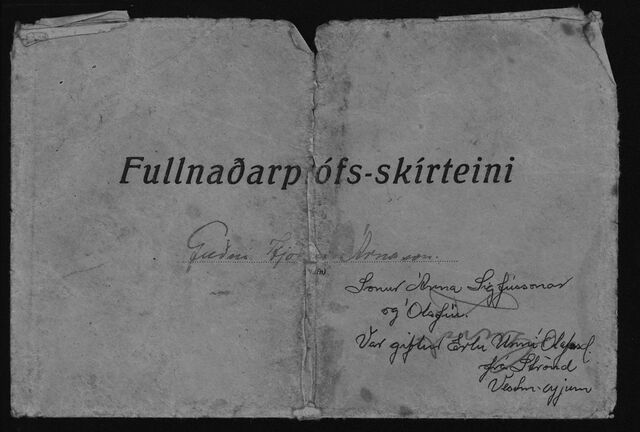 Fullnaðarprófs-skírteini
Guðni Hjö Árnason.
Sonur Árna Sigfússonar
og Ólafíu.
Var giftur Erlu Unni Ólafsd.
frá Strönd
Vestm-eyjum